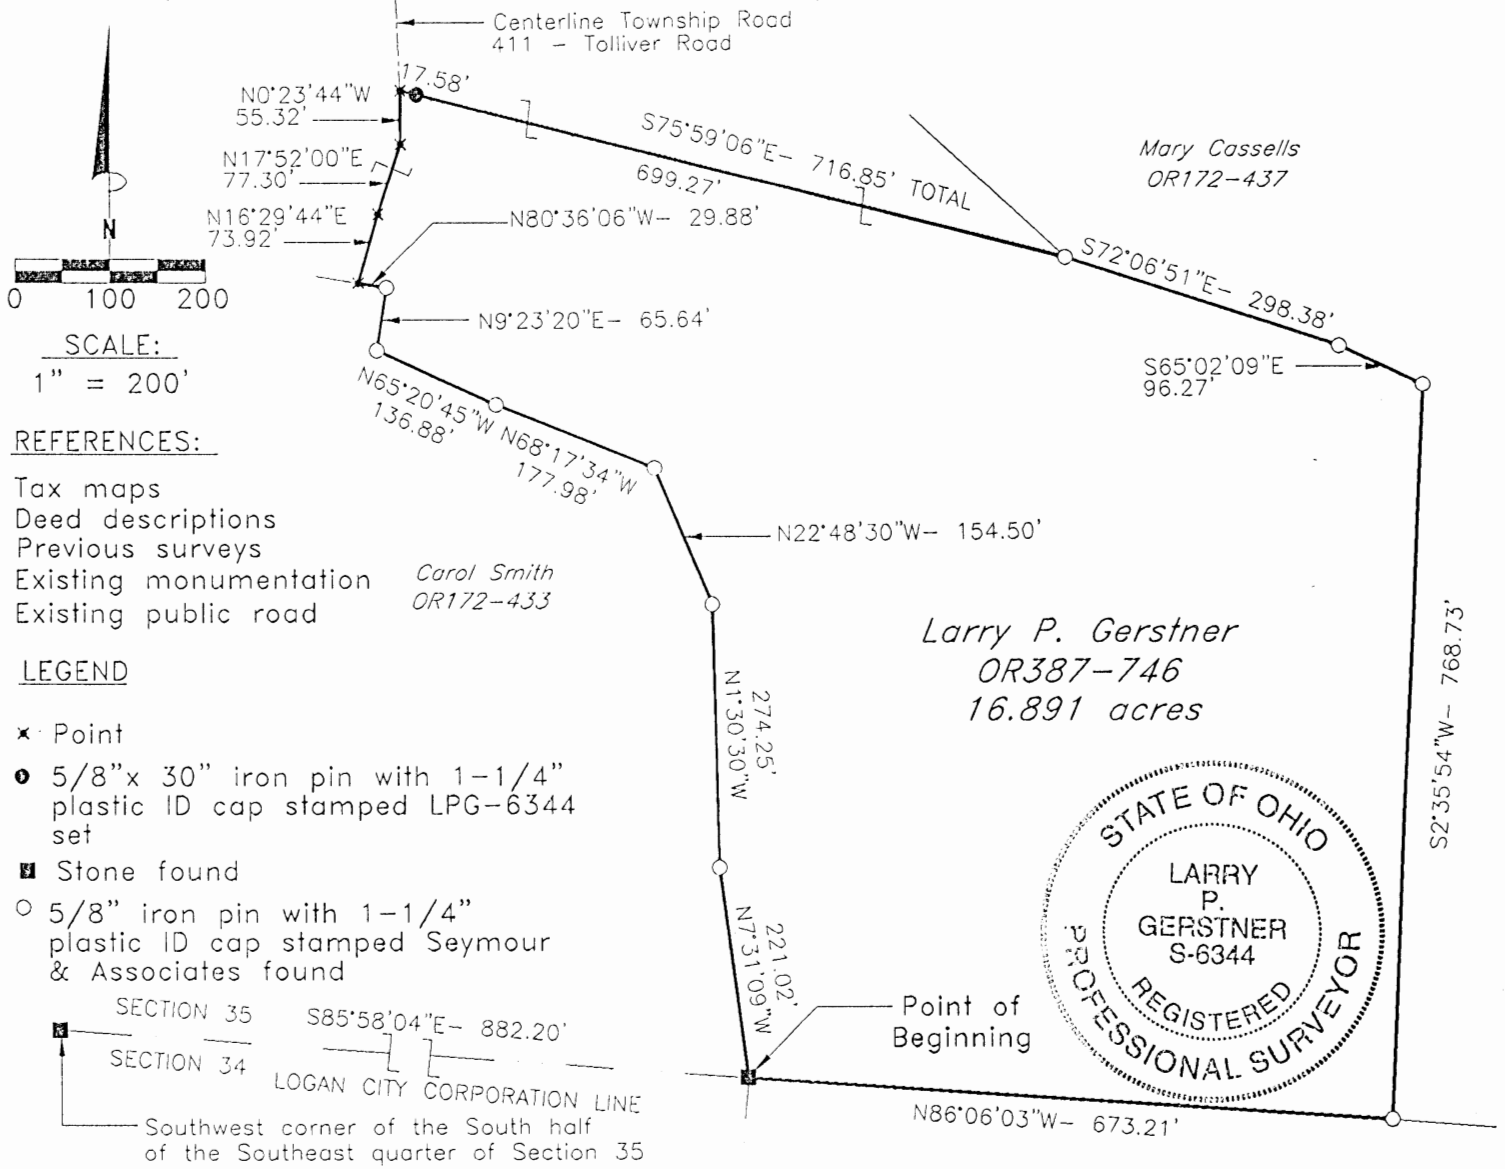 Centerline Township Road
411 - Tolliver Road
17.58'
N0°23'44"W
55.32'
N17°52'00"E
77.30'
N16°29'44"E
73.92'
S75°59'06"E- 716.85' TOTAL
699.27'
Mary Cassells
OR172-437
N80°36'06"W- 29.88'
S72°06'51"E- 298.38'
N9°23'20"E- 65.64'
S65°02'09"E
96.27'
N
0 100 200
SCALE:
1" = 200'
N65°20'45"W
136.88'
N68°17'34"W
177.98'
REFERENCES:
Tax maps
Deed descriptions
Previous surveys
Existing monumentation
Existing public road
Carol Smith
OR172-433
N22°48'30"W- 154.50'
Larry P. Gerstner
OR387-746
16.891 acres
S2°35'54"W- 768.73'
274.25'
N1°30'30"W
LEGEND
Point
5/8"x 30" iron pin with 1-1/4"
plastic ID cap stamped LPG-6344
set
Stone found
5/8" iron pin with 1-1/4"
plastic ID cap stamped Seymour
& Associates found
STATE OF OHIO
LARRY
P.
GERSTNER
S-6344
REGISTERED
PROFESSIONAL SURVEYOR
221.02'
N7°31'09"W
Point of
Beginning
SECTION 35
S85°58'04"E- 882.20'
SECTION 34
LOGAN CITY CORPORATION LINE
N86°06'03"W- 673.21'
Southwest corner of the South half
of the Southeast quarter of Section 35